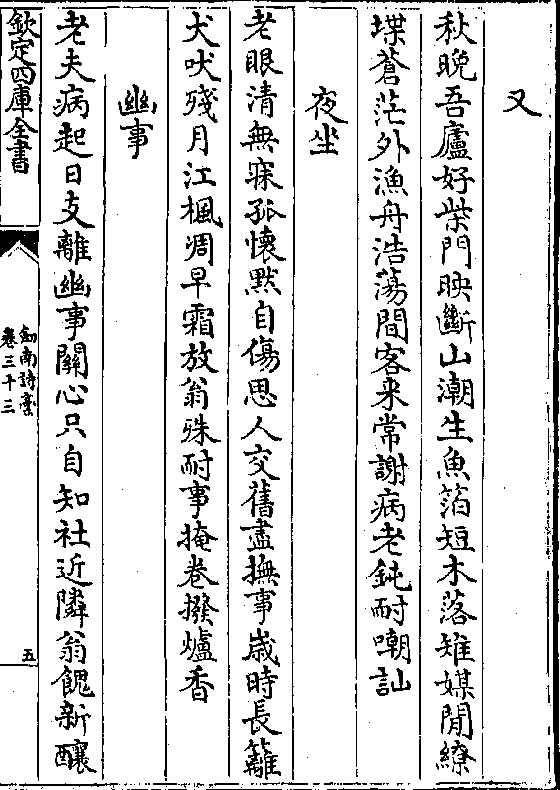 又
秋晩吾廬好柴門映斷山潮生魚箔短木落雉媒閒繚
堞蒼茫外漁舟浩蕩間客来常謝病老鈍耐嘲訕
夜坐
老眼清無寐孤懷黙自傷思人交舊盡撫事歳時長籬
犬吠殘月江楓凋早霜放翁殊耐事掩卷撥爐香
幽事
老夫病起日支離幽事關心只自知社近隣翁餽新釀
欽定四庫全書
劍南詩藁
卷三十三
五